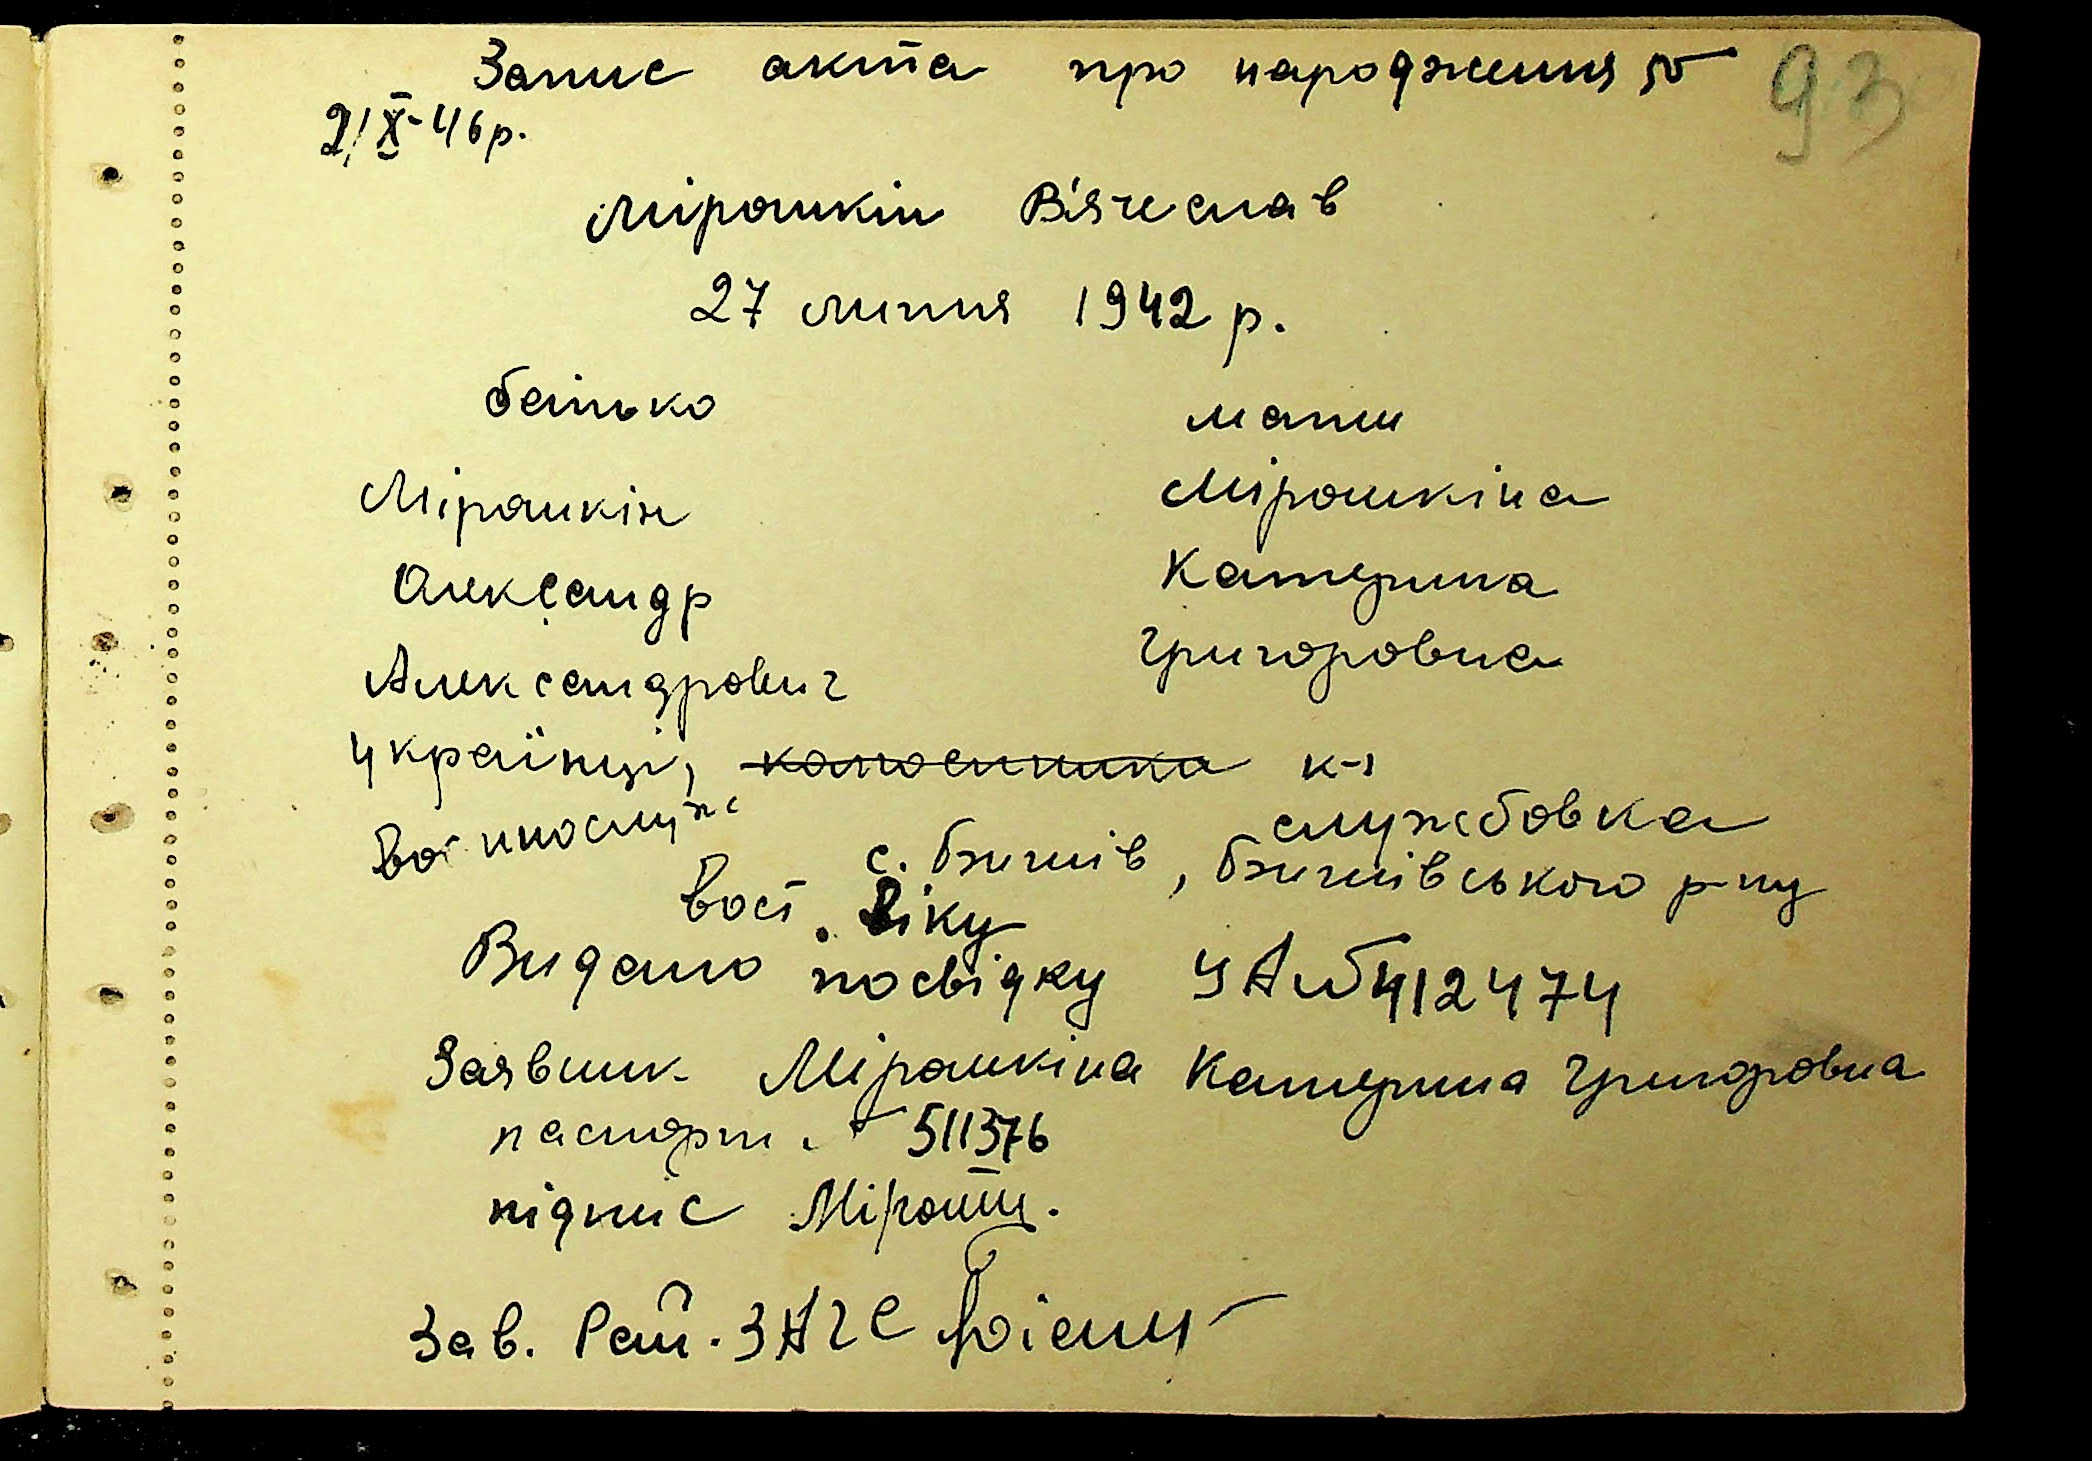 Запис акта про народження № 93
2/X-46р.
Мірошкін Вячеслав
27 липня 1942 р.
батько мати
Мірошкін Мірошкіна
Олександр Катерина
Александрович Григоровна
Українці, колгоспника к-з
воєннослуж службовка
с. Бишів, Бишівського р-ну
вост. віку
Видано посвідку УА№412474
Заявник Мірошкіна Катерина Григоровна
паспорт № 511376
підпис Мірош
Зав. Рай. ЗАГС